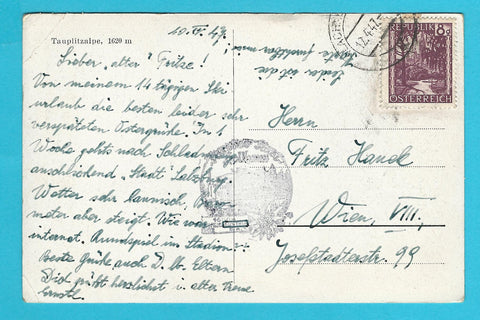 Tauplitzalpe, 1620 m
10. IV. 47.
Lieber „alter" Fritze!
Von meinem 14 tägigen Ski
urlaub die besten leider sehr
verspäteten Ostergrüße. In 1
Woche gehts nach Schladming
anschließend „Stadt" Salzburg.
Wetter sehr launisch, Baro
meter aber steigt. Wie war
internat. Rundspiel im Stadion
Beste Grüße auch D. lb. Eltern
Dich grüßt herzlichst i. alter Treue
Ernstl
Leider ist die
Karte
REPUBLIK 8
ÖSTERREICH
12.4.47
Herrn
Fritz Hauck
Wien, VIII.
Josefstädterstr. 99